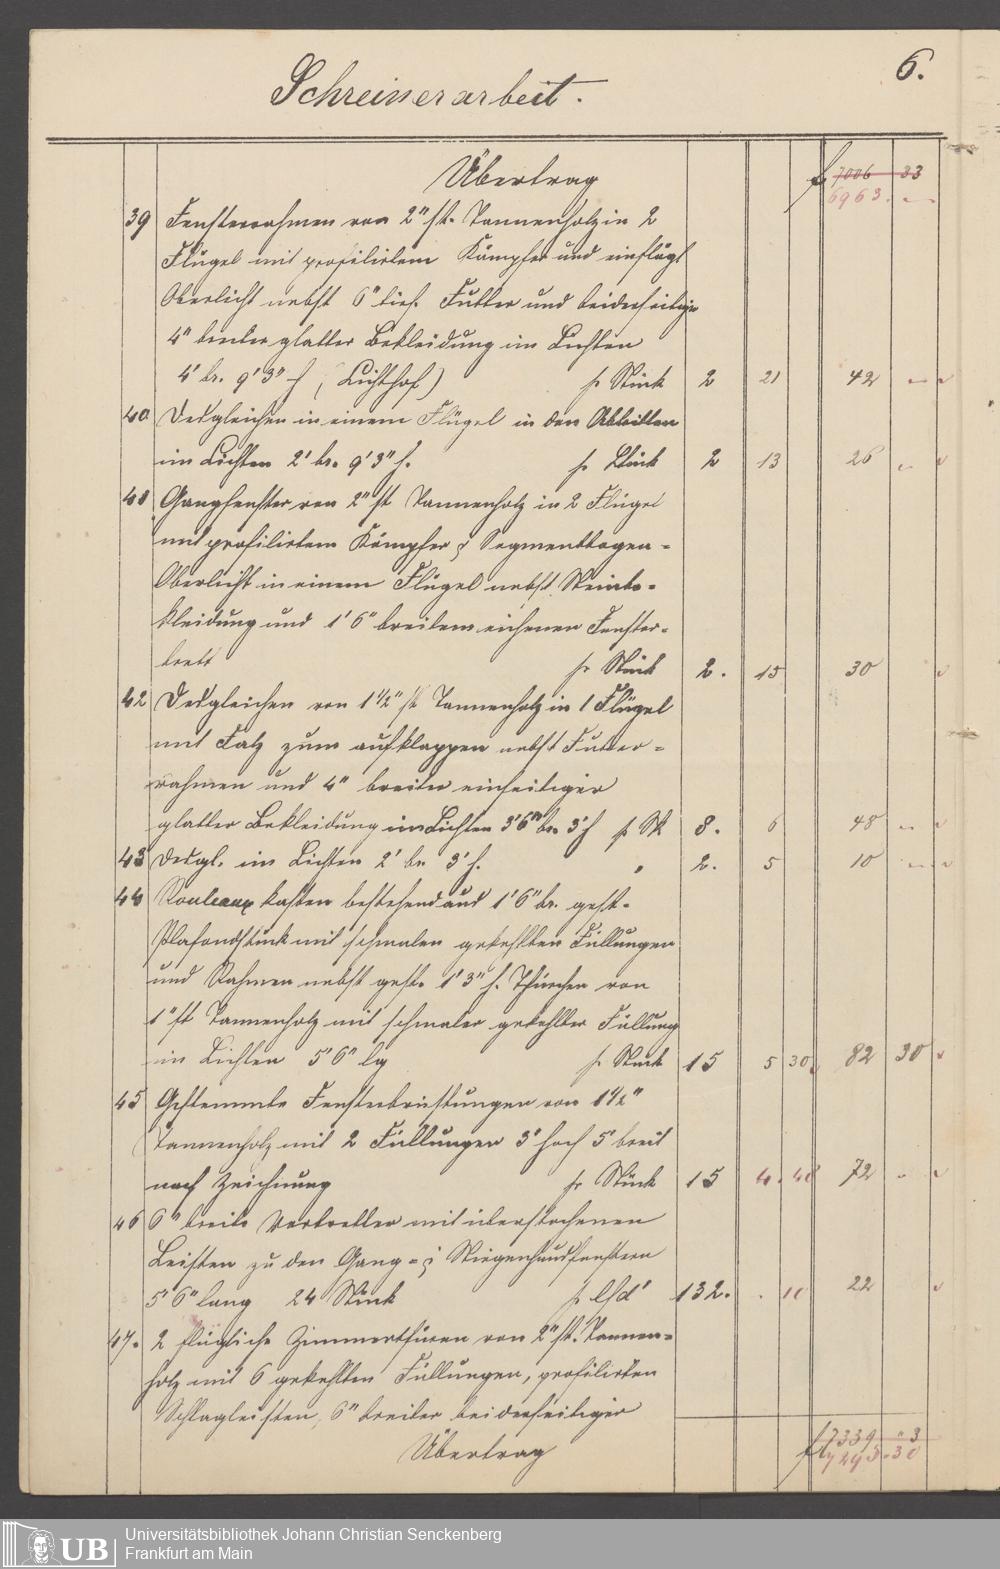 6.
Schreinerarbeit.
Übertrag f 7006 33
6963. -
39 Fensterrahmen von 2" st. Tannenholz in 2
Flügel mit profilirtem Kämpfer und einflügl
Oberlicht nebst 6" tief. Futter und beiderseitiger
4" breiter glatter Bekleidung im Lichten
4' br. 9' 3" h (Lichthof) pr Stück 2 21 42 -
40 Desgleichen in einem Flügel in den Abtritten
im Lichten 2' br. 9' 3" h. pr Stück 2 13 26 -
41 Gangfenster von 2" st Tannenholz in 2 Flügel
mit profilirtem Kämpfer & Segmentbogen-
Oberlicht in einem Flügel nebst Steinbe-
kleidung und 1' 6" breitem eichenen Fenster-
brett pr Stück 2. 15 30
42 Desgleichen von 1 1/2" st Tannenholz in 1 Flügel
mit Falz zum aufklappen nebst Futter-
rahmen und 4" breiter einseitiger
glatter Bekleidung im Lichten 3' 6" br. 3' h pr St 8. 6 48 -
43 desgl. im Lichten 2' br. 3' h. " 2. 5 10 -
44 Rouleaux kasten bestehend aus 1' 6" br. gest.
Plafondstück mit schmalen gekehlten Füllungen
und Rahmen nebst gest. 1' 3" h. Thürchen von
1" st Tannenholz mit schmaler gekehlter Füllung
im Lichten 5' 6" lg pr Stück 15 5 30 82 30
45 Gestemmte Fensterbrüstungen von 1 1/2"
Tannenholz mit 2 Füllungen 3' hoch 5' breit
nach Zeichnung pr Stück 15 4. 48 72 -
46 6" breite Vorbretter mit überstochenen
Leisten zu den Gang- & Stiegenhausfenstern
5' 6" lang 24 Stück pr lfd' 132. . 10 22
47. 2 flügliche Zimmerthüren von 2" st. Tannen-
holz mit 6 gekehlten Füllungen, profilirten
Schlagleisten, 6" breiter beiderseitiger
Übertrag f 7339 " 3
7295.30
Universitätsbibliothek Johann Christian Senckenberg
Frankfurt am Main
UB